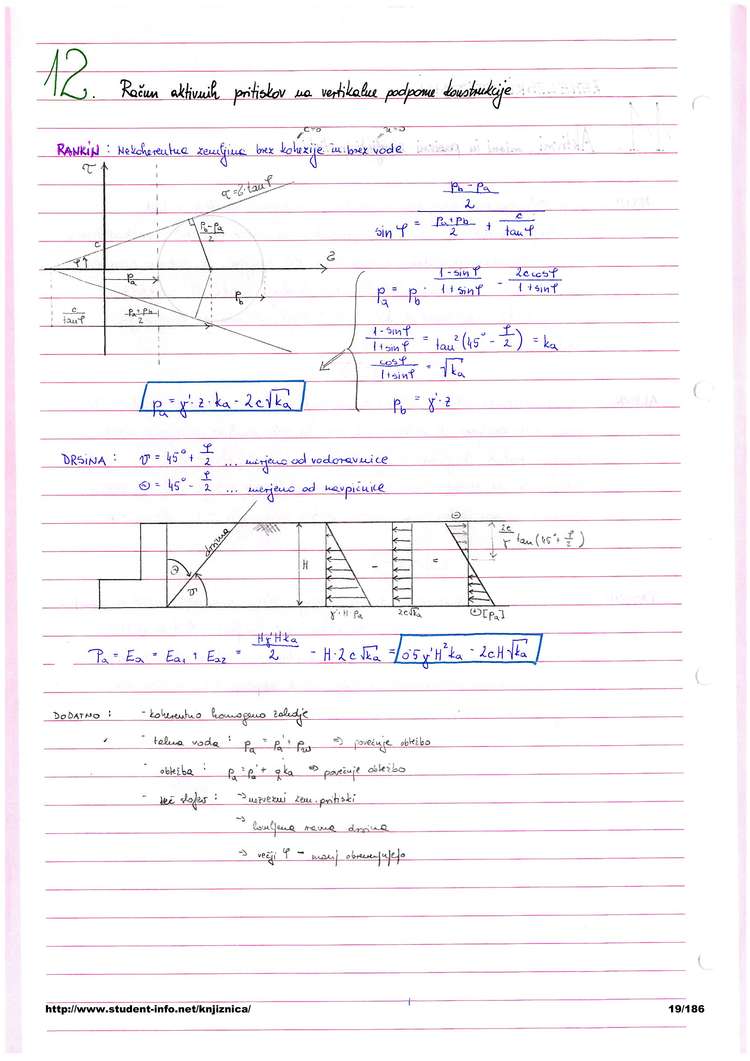 12. Račun aktivnih pritiskov na vertikalne podporne konstrukcije
c=0 u=0
RANKIN : Nekoherentna zemljina brez kohezije in brez vode
τ
τ = σ·tan φ
c
φ
(pb - pa)/2
σ
pa
pb
c/tan φ
(pa + pb)/2
sin φ = ((pb - pa)/2) / ((pa + pb)/2 + c/tan φ)
pa = pb · (1 - sin φ)/(1 + sin φ) - 2c cos φ/(1 + sin φ)
(1 - sin φ)/(1 + sin φ) = tan²(45° - φ/2) = ka
cos φ/(1 + sin φ) = √ka
pb = γ'·z
pa = γ'·z·ka - 2c√ka
DRSINA : ϑ = 45° + φ/2 ... merjeno od vodoravnice
Θ = 45° - φ/2 ... merjeno od navpičnice
drsina
Θ
ϑ
H
-
=
⊖
2c/γ tan(45° + φ/2)
γ'·H pa
2c√ka
⊕ [pa]
Pa = Ea = Ea1 + Ea2 = Hγ'Hka/2 - H·2c√ka = 0.5γ'H²ka - 2cH√ka
DODATNO : - koherentno homogeno zaledje
- talna voda : pa = pa' + pw ⇒ povečuje obtežbo
- obtežba : pa = pa' + q ka ⇒ povečuje obtežbo
- več slojev : → nezvezni zem. pritiski
→ lomljena ravna drsina
→ večji φ - manj obremenjujejo
http://www.student-info.net/knjiznica/
19/186